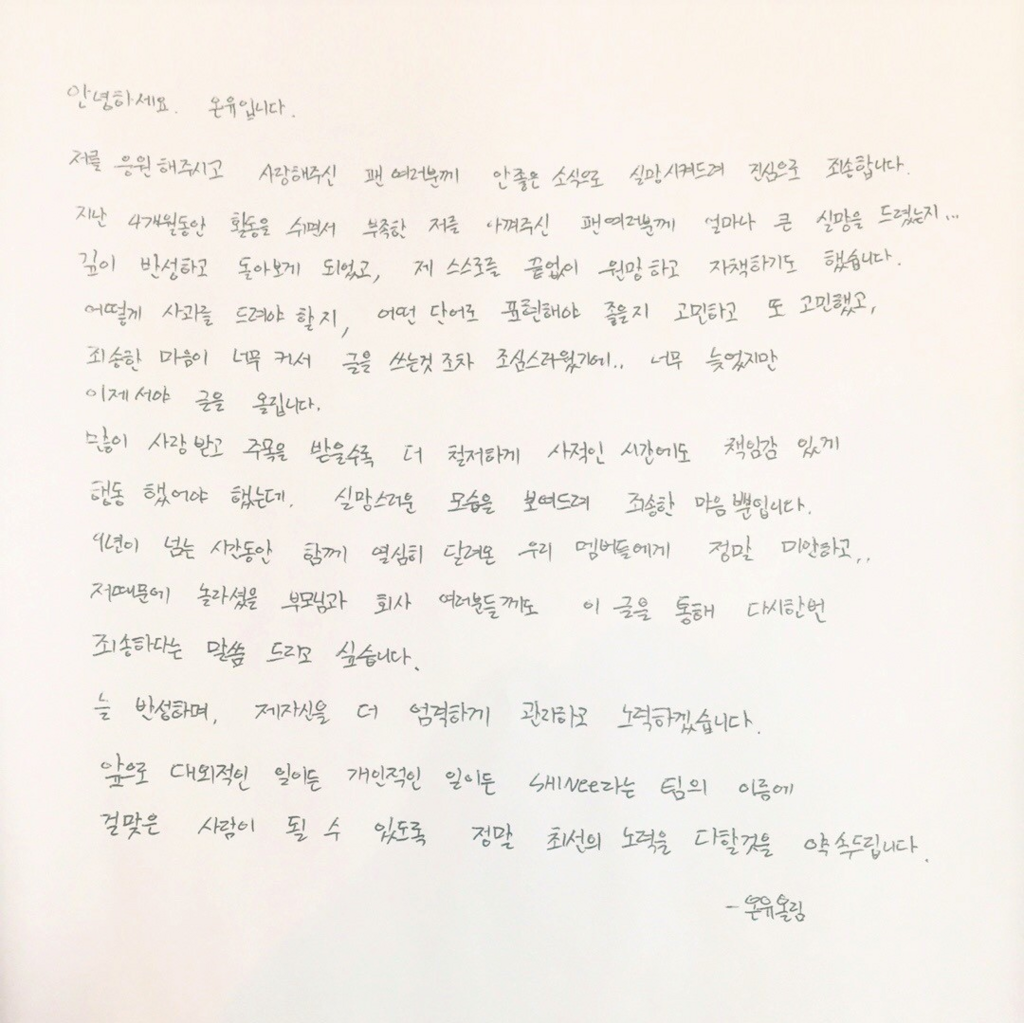 안녕하세요. 온유입니다.
저를 응원해주시고 사랑해주신 팬 여러분께 안좋은 소식으로 실망시켜드려 진심으로 죄송합니다.
지난 4개월동안 활동을 쉬면서 부족한 저를 아껴주신 팬여러분께 얼마나 큰 실망을 드렸는지...
깊이 반성하고 돌아보게 되었고, 제 스스로를 끝없이 원망하고 자책하기도 했습니다.
어떻게 사과를 드려야 할지, 어떤 단어로 표현해야 좋을지 고민하고 또 고민했고,
죄송한 마음이 너무 커서 글을 쓰는것 조차 조심스러웠기에.. 너무 늦었지만
이제서야 글을 올립니다.
많이 사랑받고 주목을 받을수록 더 철저하게 사적인 시간에도 책임감 있게
행동 했어야 했는데. 실망스러운 모습을 보여드려 죄송한 마음뿐입니다.
9년이 넘는 시간동안 함께 열심히 달려온 우리 멤버들에게 정말 미안하고,,
저때문에 놀라셨을 부모님과 회사 여러분들께도 이 글을 통해 다시한번
죄송하다는 말씀 드리고 싶습니다.
늘 반성하며, 제자신을 더 엄격하게 관리하고 노력하겠습니다.
앞으로 대외적인 일이든 개인적인 일이든 SHINee라는 팀의 이름에
걸맞은 사람이 될 수 있도록 정말 최선의 노력을 다할것을 약속드립니다.
-온유올림